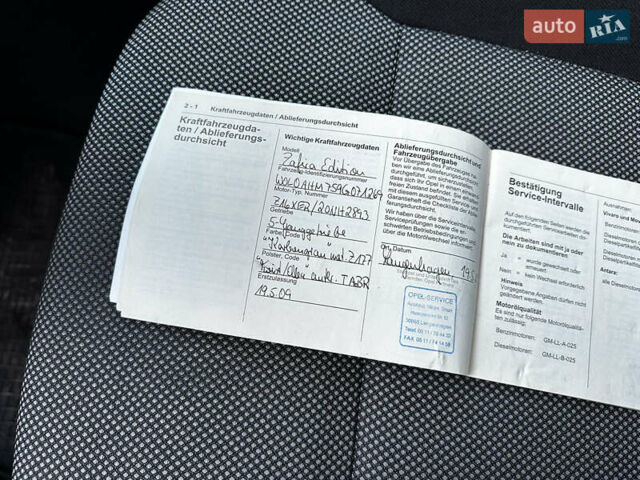 auto RIA .com
2 - 1 Kraftfahrzeugdaten / Ablieferungsdurchsicht
Kraftfahrzeugda-
ten / Ablieferungs-
durchsicht
Wichtige Kraftfahrzeugdaten
Modell
Zafira Edition
Fahrzeug-Identifizierungsnummer
W0L0AHM759G071269
Motor-Typ, Nummer
Z16XER/20NH2893
Getriebe
5-Ganggetriebe
Farbe, Code
"Karbongrau" met. Z177
Polster, Code
TABR
Erstzulassung
19.5.09
Ablieferungsdurchsicht und
Fahrzeugübergabe
Vor Übergabe des Fahrzeuges haben
wir eine Ablieferungsdurchsicht
durchgeführt, um sicherzustellen,
dass sich Ihr Opel in einem einwand-
freien Zustand befindet. Sie erhalten
mit diesem ausgefüllten Service- und
Garantieheft die Checkliste der Ablie-
ferungsdurchsicht.
Wir haben über die Serviceintervalle,
Serviceprüfungen sowie die er-
schwerten Betriebsbedingungen und
über die Motorölwechsel informiert.
Ort, Datum
Langenhagen, 19.5.
OPEL-SERVICE
30853 Langenhagen
Bestätigung
Service-Intervalle
Auf den folgenden Seiten werden die
durchgeführten Servicearbeiten doku-
mentiert.
Die Arbeiten sind mit ja oder
nein zu dokumentieren
Ja = wurde gewechselt oder
erneuert.
Nein = kein Wechsel erforderlich.
Hinweis
Vorgegebene Angaben dürfen nicht
geändert werden.
Motorölqualität
Es sind nur folgende Motorölqualitä-
ten zulässig:
Benzinmotoren: GM-LL-A-025
Dieselmotoren: GM-LL-B-025
Ausnahmen:
Vivaro und
Antara: